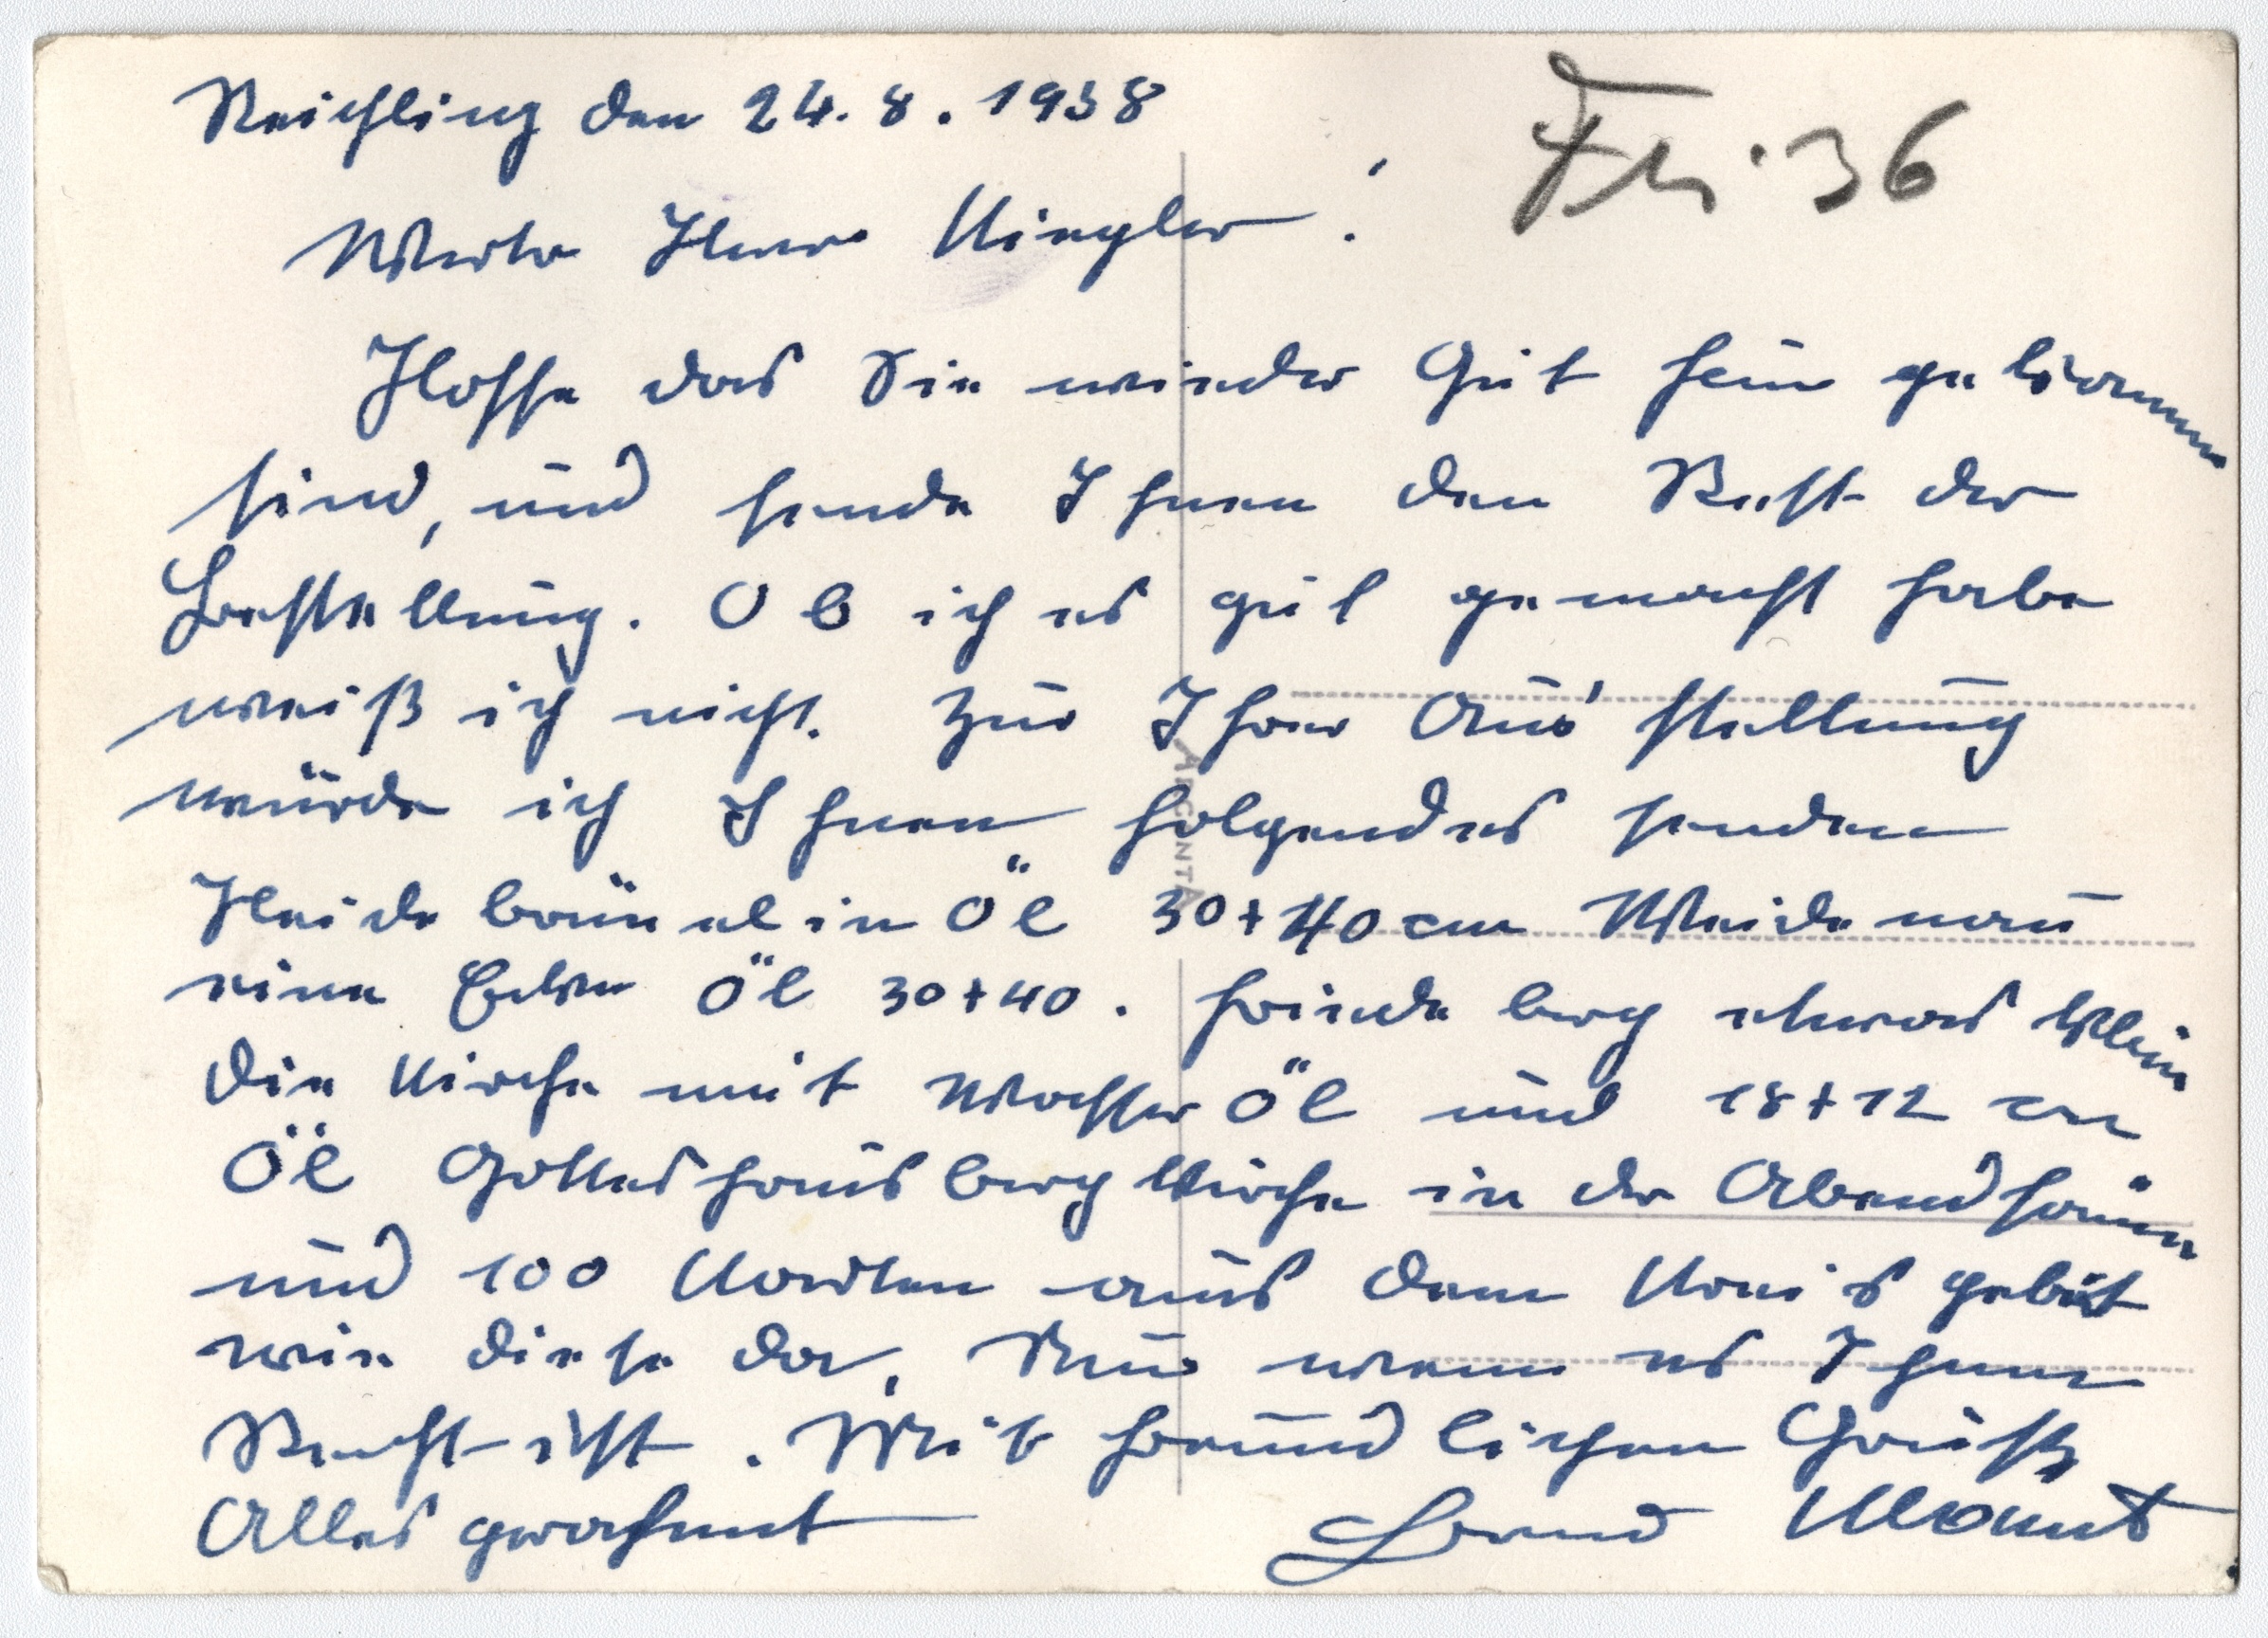 Reichling den 24. 8. 1938
Fri 36
Werter Herr Kingler!
Hoffe das Sie wieder Gut heim gekommen
sind, und sende Ihnen den Rest der
Bestellung. Ob ich es gut gemacht habe
weiß ich nicht. Zur Ihrer Aus'stellung
würde ich Ihnen folgendes senden
ARGENTA
Heide in Öl 30+40 cm Weide
eine Öl 30+40. berg etwas klein
die Kirche mit Wasser Öl und 18+12 cm
Öl Gotteshausberg Kirche in der Abend
und 100 Karten aus dem Kreis gebiet
wie diese da, Nur wenn es Ihnen
Recht ist. Mit freundlichen Gruß
Alles gerahmt